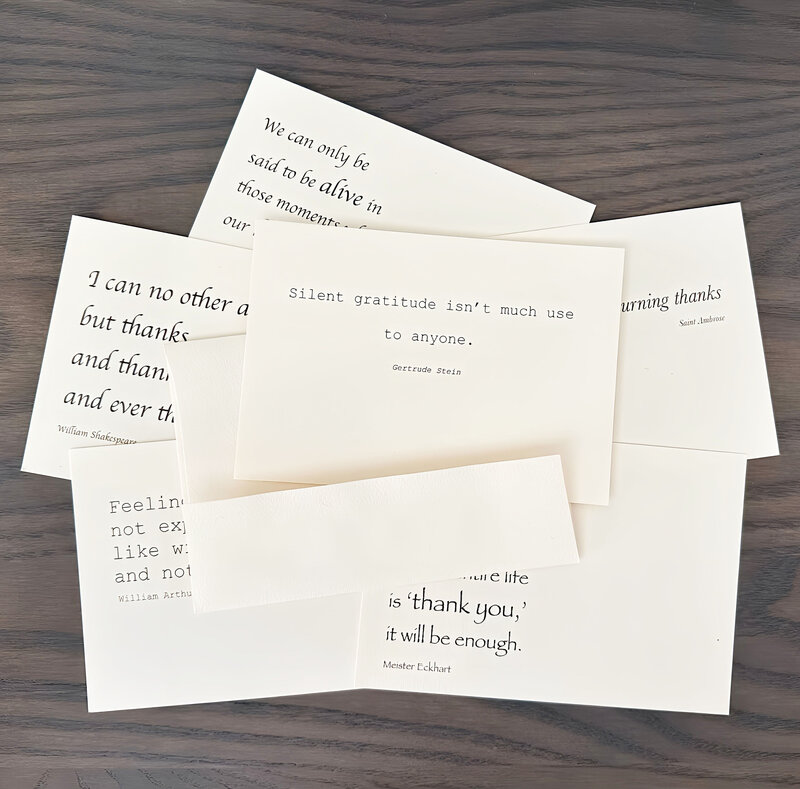 We can only be
said to be alive in
those moments
our
I can no other
but thanks
and
and ever
William Shakespeare
Silent gratitude isn't much use
to anyone.
Gertrude Stein
thanks
Saint Ambrose
not
like
and
William
life
is ‘thank you,’
it will be enough.
Meister Eckhart